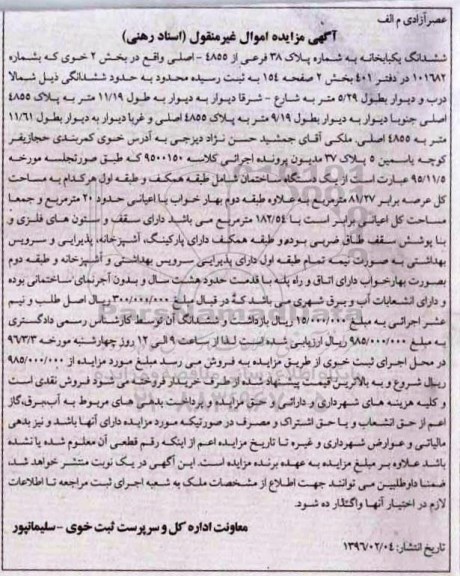 عصر آزادی م الف
آگهی مزایده اموال غیرمنقول (اسناد رهنی)
ششدانگ یکبابخانه به شماره پلاک ۳۸ فرعی از ۴۸۵۵ - اصلی واقع در بخش ۲ خوی که بشماره
۱۰۱۶۸۲ در دفتر ۴۰۱ بخش ۲ صفحه ۱۵۴ به ثبت رسیده محدود به حدود ششدانگی ذیل شمالا
درب و دیوار بطول ۵/۲۹ متر به شارع - شرقا دیوار به دیوار به طول ۱۱/۱۹ متر به پلاک ۴۸۵۵
اصلی جنوبا دیوار به دیوار بطول ۹/۱۹ متر به پلاک ۴۸۵۵ اصلی و غربا دیوار به دیوار بطول ۱۱/۶۱
متر به ۴۸۵۵ اصلی. ملکی آقای جمشید حسن نژاد دیزجی به آدرس خوی کمربندی حجازیفر
کوچه یاسمین ۵ پلاک ۳۷ مدیون پرونده اجرائی کلاسه ۹۵۰۰۱۵۰ که طبق صورتجلسه مورخه
۹۵/۱۱/۵ عبارت است از یک دستگاه ساختمان شامل طبقه همکف و طبقه اول هر کدام به مساحت
کل عرصه برابر ۸۱/۲۷ مترمربع به علاوه طبقه دوم بهار خواب با اعیانی حدود ۲۰ مترمربع و جمعا
مساحت کل اعیانی برابر است با ۱۸۲/۵۴ مترمربع می باشد دارای سقف و ستون های فلزی و
با پوشش سقف طاق ضربی بوده و طبقه همکف دارای پارکینگ، آشپزخانه، پذیرایی و سرویس
بهداشتی به صورت نیمه تمام طبقه اول دارای پذیرایی سرویس بهداشتی و آشپزخانه و طبقه دوم
بصورت بهارخواب دارای اتاق و راه پله با قدمت حدود هشت سال و بدون آجرنمای ساختمانی بوده
و دارای انشعابات آب و برق شهری می باشد که در قبال مبلغ ۳۰۰/۰۰۰/۰۰۰ ریال اصل طلب و نیم
عشر اجرائی به مبلغ ۱۵/۰۰۰/۰۰۰ ریال بازداشت و ششدانگ آن توسط کارشناس رسمی دادگستری
به مبلغ ۹۸۵/۰۰۰/۰۰۰ ریال ارزیابی شده است لذا از ساعت ۹ الی ۱۲ روز چهارشنبه مورخه ۹۶/۳/۳
در محل اجرای ثبت خوی از طریق مزایده به فروش می رسد مبلغ مورد مزایده از ۹۸۵/۰۰۰/۰۰۰
ریال شروع و به بالاترین قیمت پیشنهاد شده از طرف خریدار فروخته می شود فروش نقدی است
و کلیه هزینه های شهرداری و دارائی و حق مزایده و پرداخت بدهی های مربوط به آب،برق،گاز
اعم از حق انشعاب و یا حق اشتراک و مصرف در صورتیکه مورد مزایده دارای آنها باشد و نیز بدهی
مالیاتی و عوارض شهرداری و غیره تا تاریخ مزایده اعم از اینکه رقم قطعی آن معلوم شده یا نشده
باشد علاوه بر مبلغ مزایده به عهده برنده مزایده است. این آگهی در یک نوبت منتشر خواهد شد،
ضمنا داوطلبین می توانند جهت اطلاع از مشخصات ملک به شعبه اجرای ثبت مراجعه تا اطلاعات
لازم در اختیار آنها واگذار ده شود.
معاونت اداره کل و سرپرست ثبت خوی - سلیمانپور
تاریخ انتشار: ۱۳۹۶/۰۲/۰۴